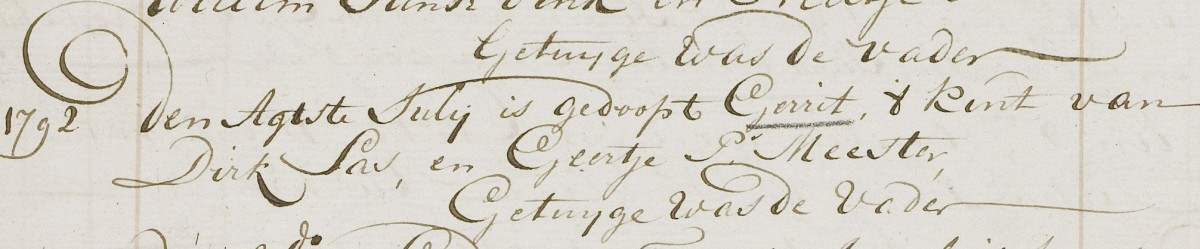 Willem Janse Vink en
Getuyge was de vader
1792 den Agtste Julij is gedoopt Gerrit, 't kint van
Dirk Las, en Geertje P. Meester,
Getuyge was de Vader